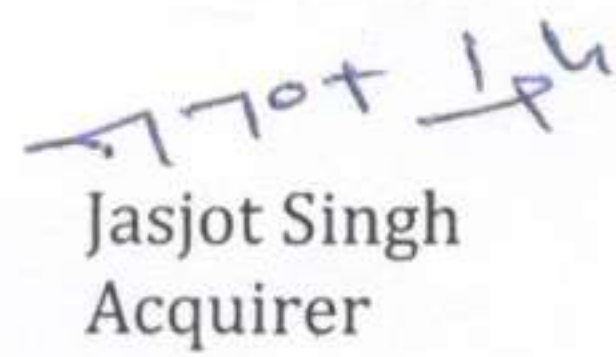 Jasjot Singh
Acquirer